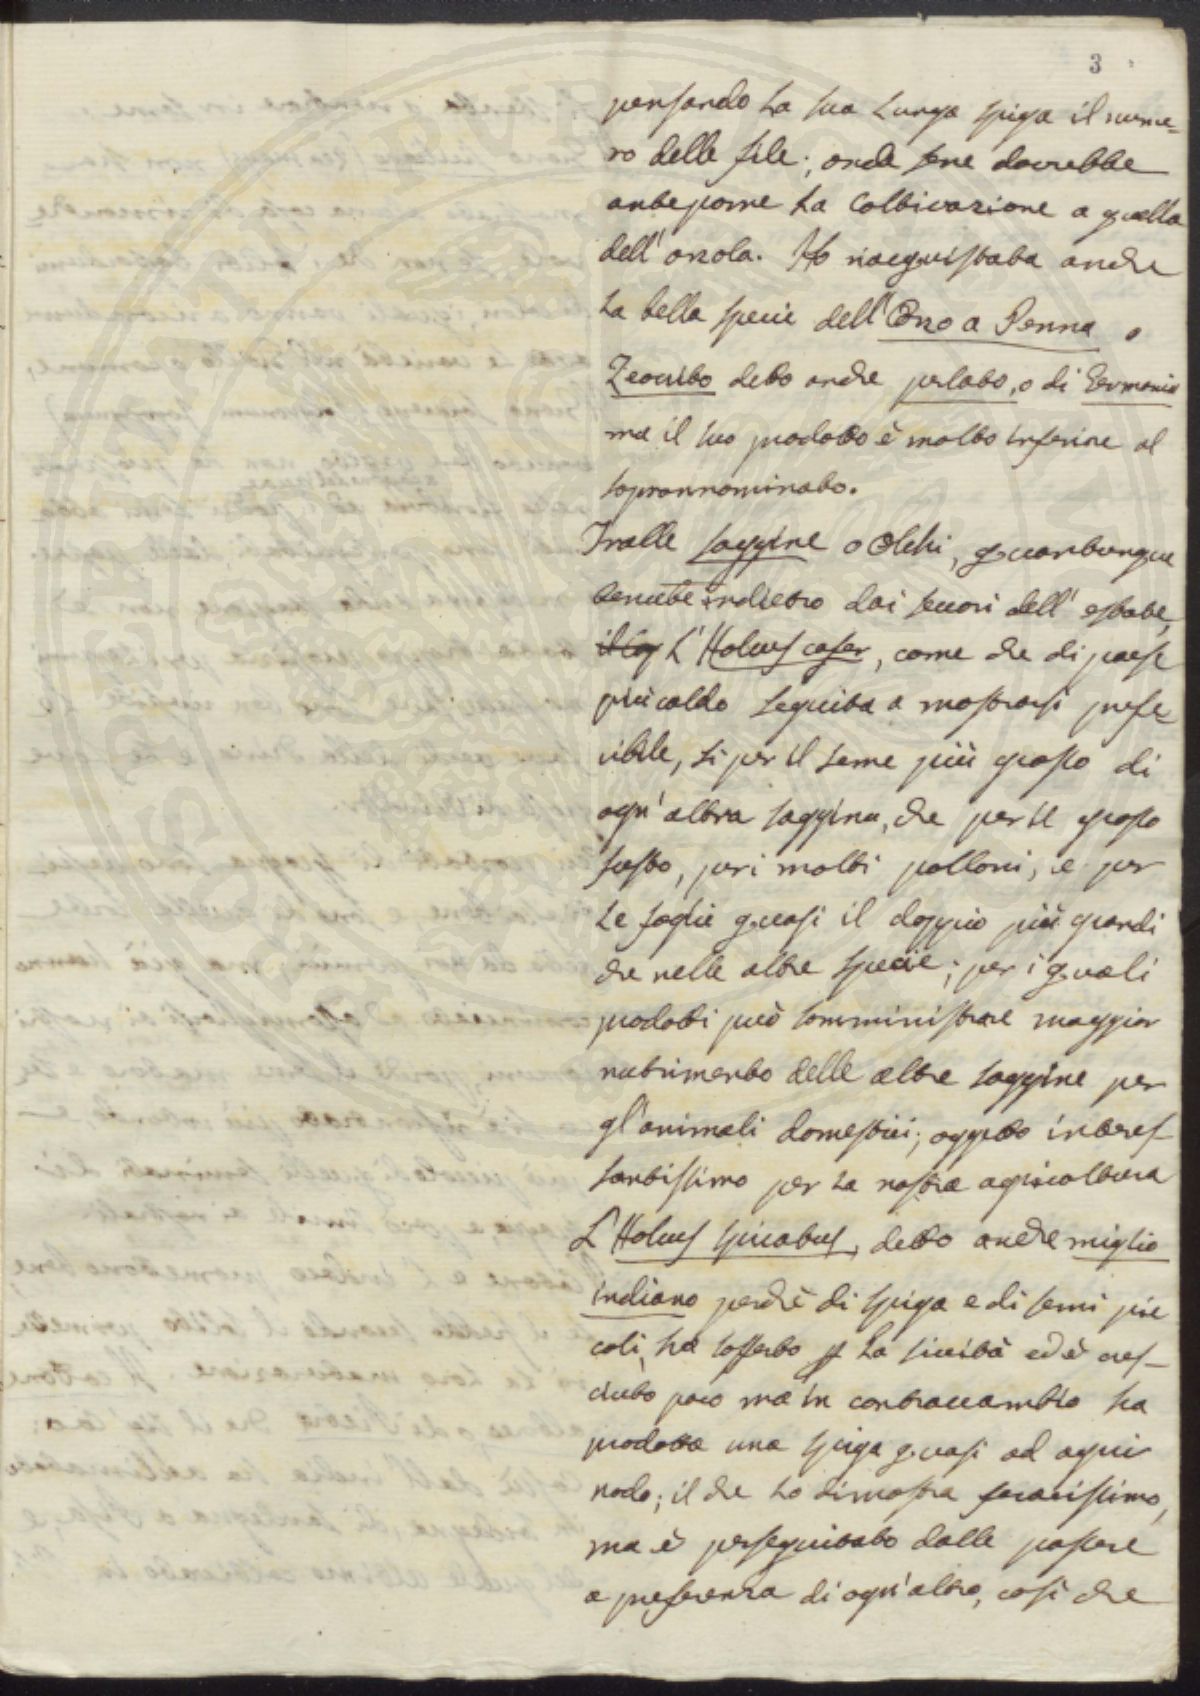 3
pensando la sua lunga spiga il nume=
ro delle file; onde sene dovrebbe
anteporne la Coltivazione a quella
dell'orzola. Ho riacquistata anche
la bella specie dell'Orzo a Penna o
Zeocrito detto anche perlato, o di Germania
ma il suo prodotto è molto inferiore al
soprannominato.
Tralle saggine o Olchi, quantunque
tenute indietro dai seccori dell'estate,
L'Holcus cafer, come che di paese
più caldo seguita a mostrarsi prefe
ribile, sì per il seme più grosso di
ogn'altra saggina, che per il grosso
fusto, per i molti polloni, e per
le foglie quasi il doppio più grandi
che nelle altre specie; per i quali
prodotti può somministrare maggior
nutrimento delle altre saggine per
gl'animali domestici; oggetto interes-
santissimo per la nostra agricoltura
L'Holcus spicatus, detto anche miglio
indiano perchè di spiga e di semi pic
coli, ha sofferto la siccità ed è cres-
ciuto poco ma in contraccambio ha
prodotta una spiga quasi ad ogni
nodo; il che lo dimostra feracissimo,
ma è perseguitato dalle passere
a preferenza di ogn'altro, così che